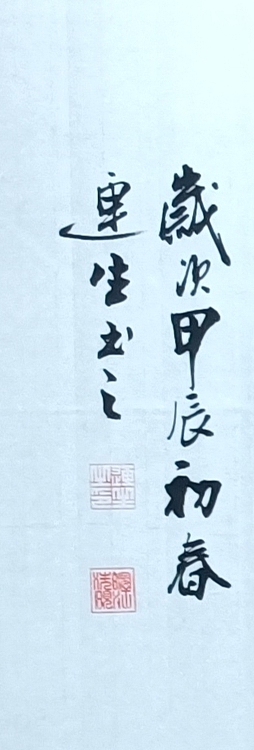 歲次甲辰初春
連生書之